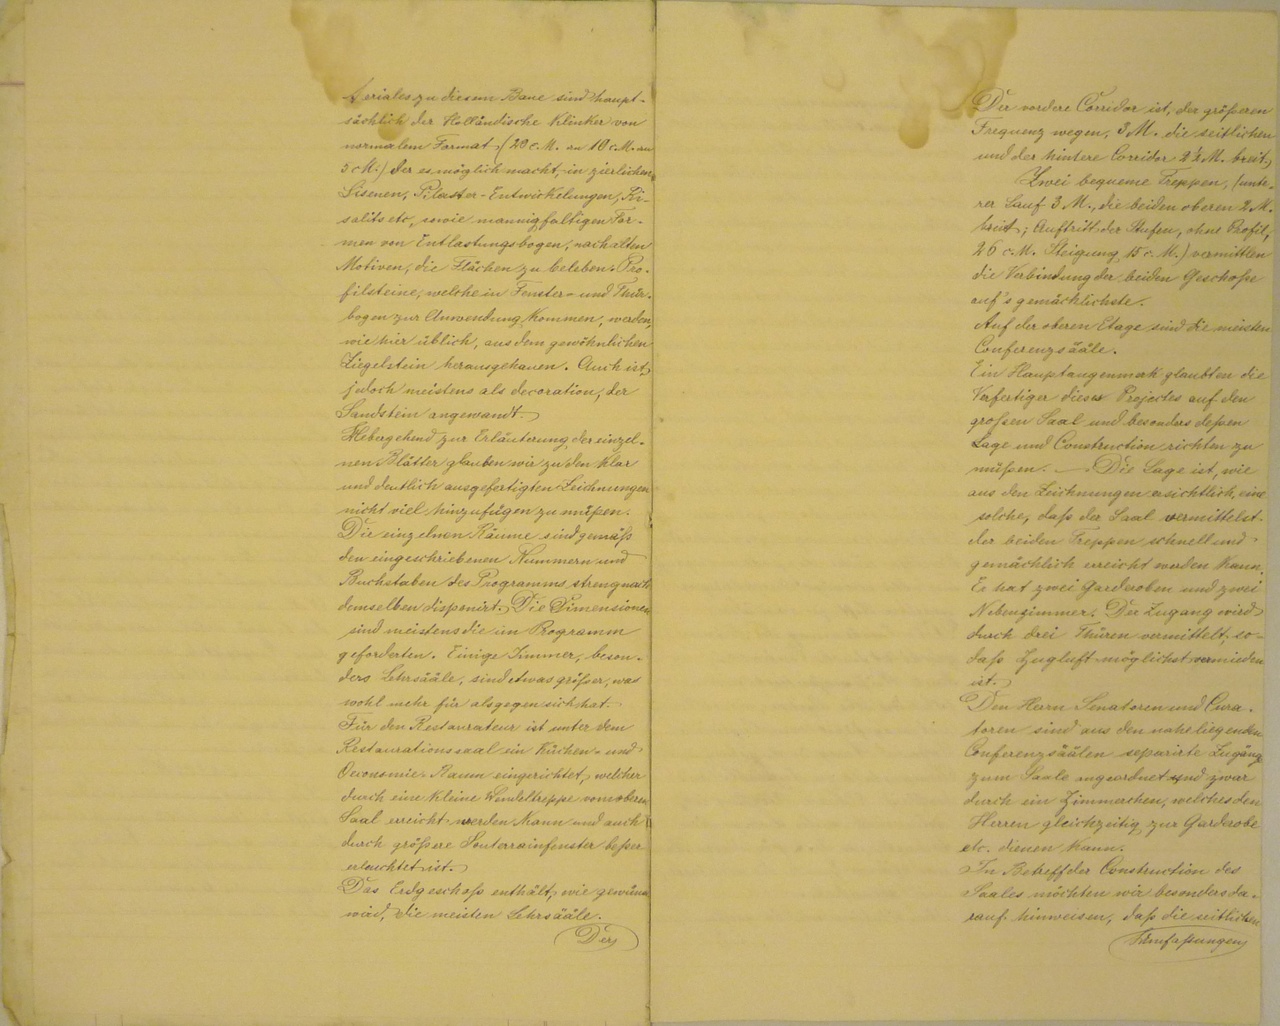 teriales zu diesem Baue sind haupt-
sächlich der Holländische Klinker von
normalem Format (20 c.M. an 10 c.M. an
5 c.M.) der es möglich macht, in zierlichen
Lisenen, Pilaster-Entwickelungen, Ri-
salits etc, sowie mannigfaltigen For-
men von Entlastungsbogen, nach alten
Motiven, die Flächen zu beleben. Pro-
filsteine, welche in Fenster- und Thür-
bogen zur Anwendung kommen, werden,
wie hier üblich, aus dem gewöhnlichen
Ziegelstein herausgehauen. Auch ist,
jedoch meistens als decoration, der
Sandstein angewandt.
Uebergehend zur Erläuterung der einzel-
nen Blätter glauben wir zu den klar
und deutlich ausgefertigten Zeichnungen
nicht viel hinzufügen zu müßen.
Die einzelnen Räume sind gemäß
den eingeschriebenen Nummern und
Buchstaben des Programms streng nach
demselben disponirt. Die Dimensionen
sind meistens die im Programm
geforderten. Einige Zimmer, beson-
ders Lehrsääle, sind etwas größer, was
wohl mehr für als gegen sich hat.
Für den Restaurateur ist unter dem
Restaurationssaal ein Küchen- und
Oeconomie-Raum eingerichtet, welcher
durch eine kleine Wendeltreppe vom oberen
Saal erreicht werden kann und auch
durch größere Souterrainfenster beßer
erleuchtet ist.
Das Erdgeschoß enthält, wie gewünscht
wird, die meisten Lehrsääle.
Der
Der vordere Corridor ist, der größeren
Frequenz wegen, 3 M. die seitlichen
und der hintere Corridor 2½ M. breit.
Zwei bequeme Treppen, (unte-
rer Lauf 3 M., die beiden oberen 2 M.
breit; Auftritt der Stufen, ohne Profil,
26 c.M. Steigung 15 c.M.) vermitteln
die Verbindung der beiden Geschoße
auf's gemächlichste.
Auf der oberen Etage sind die meisten
Conferenzsääle.
Ein Hauptaugenmerk glaubten die
Verfertiger dieses Projectes auf den
großen Saal und besonders deßen
Lage und Construction richten zu
müßen. — Die Lage ist, wie
aus den Zeichnungen ersichtlich, eine
solche, daß der Saal vermittelst
der beiden Treppen schnell und
gemächlich erreicht werden kann.
Er hat zwei Garderoben und zwei
Nebenzimmer. Der Zugang wird
durch drei Thüren vermittelt, so-
daß Zugluft möglichst vermieden
ist.
Den Herrn Senatoren und Cura-
toren sind aus den naheliegenden
Conferenzsäälen separirte Zugänge
zum Saale angeordnet und zwar
durch ein Zimmerchen, welches den
Herren gleichzeitig zur Garderobe
etc. dienen kann.
In Betreff der Construction des
Saales möchten wir besonders da-
rauf hinweisen, daß die seitlichen
Umfaßungen